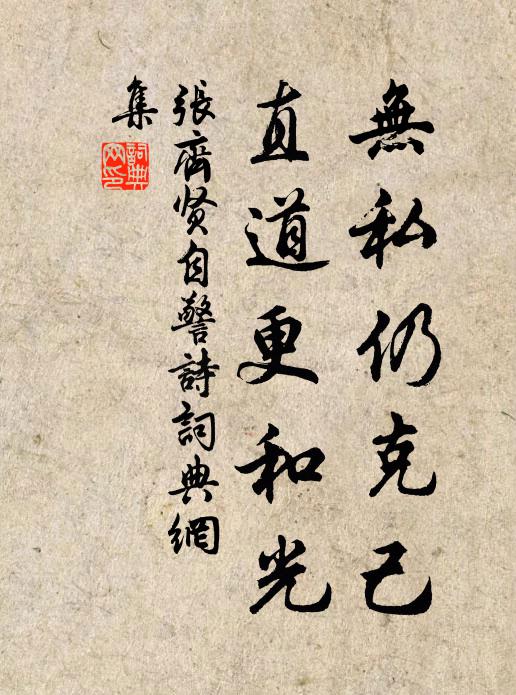 無私仍克己
直道更和光
張齊贤自警詩詞典網
集
詞典網印